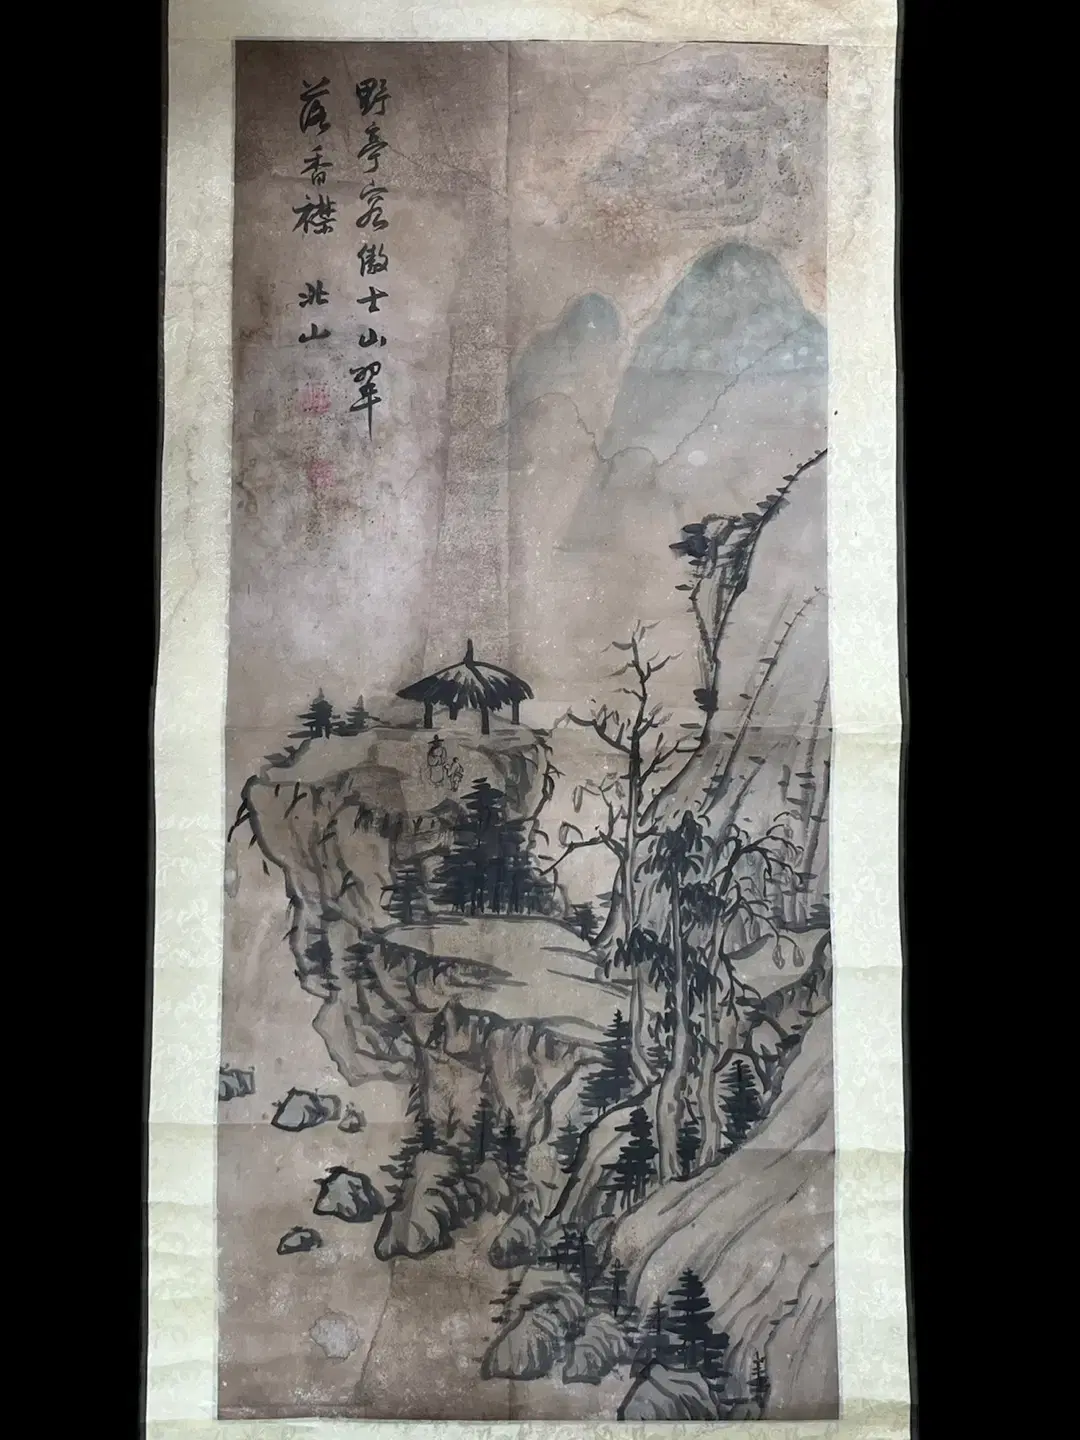 野亭容傲士山翠
落香襟 北山